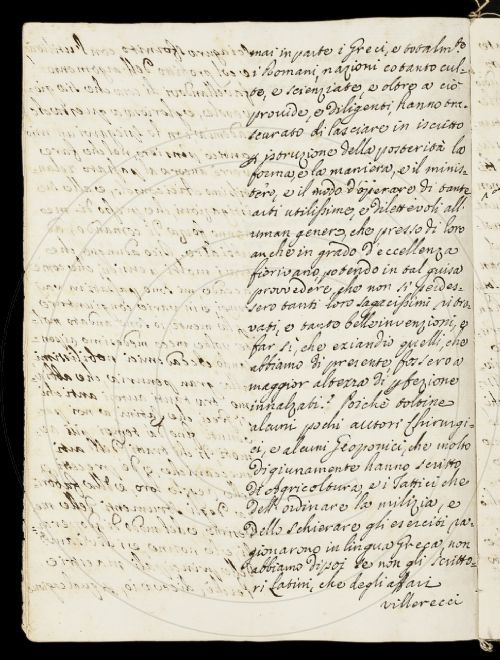 mai in parte i Greci, e totalm.te
i Romani, nazioni cotanto cul-
te, e scienziate, e oltre a ciò
provide, e diligenti, hanno tra-
scurato di lasciare in iscritto
p istruzione della posterità la
forma, e la maniera, e il minis-
tero, e il modo d'operare di tante
arti utilissime, e dilettevoli all'
uman genere, che presso di loro
anche in grado d'eccellenza
fiorivano, potendo in tal guisa
provvedere, che non si perdes-
sero tanti loro sagacissimi ritro-
vati, e tanto belle invenzioni, e
far sì, che eziandio quelli, che
abbiamo di presente fossero a
maggior altezza di pfezione
innalzati? Poichè toltine
alcuni pochi autori Chirurgi-
ci, e alcuni Geoponici, che molto
digiunamente hanno scritto
di Agricoltura, e i Tattici che
dell'ordinare la milizia, e
dello schierare gli eserciti ra-
gionarono in lingua Greca, non
abbiamo dipoi se non gli Scritto-
ri Latini, che degli affari
villerecci